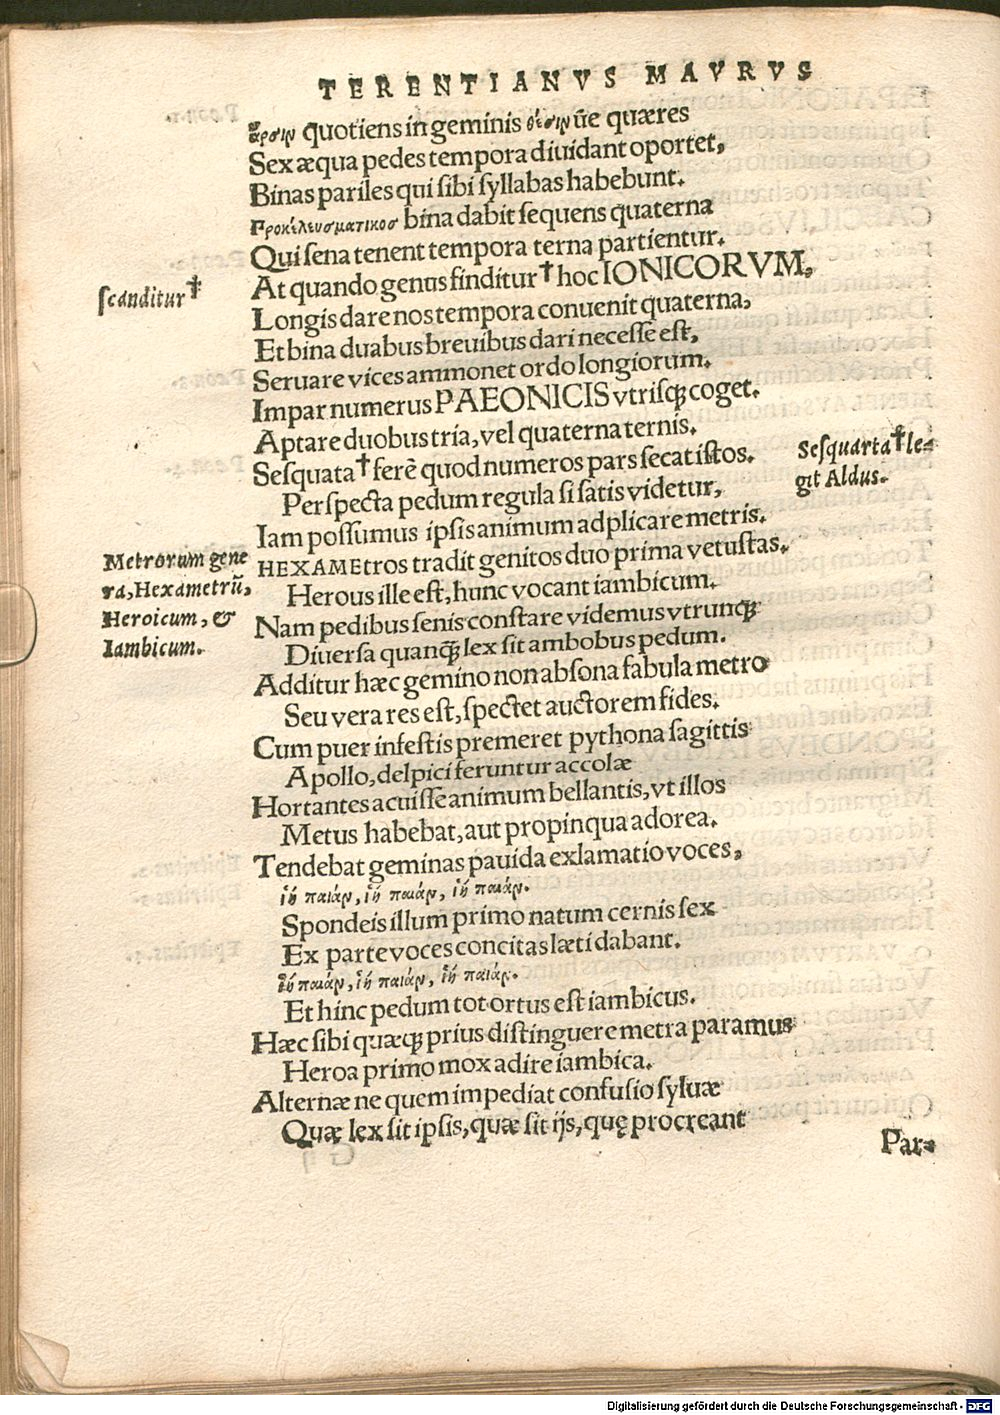 TERENTIANVS MAVRVS
ἄρσιν quotiens in geminis θέσιν ūe quæres
Sex æqua pedes tempora diuidant oportet,
Binas pariles qui sibi syllabas habebunt.
Προκελευσματικοσ bina dabit sequens quaterna
Qui sena tenent tempora terna partientur.
At quando genus finditur† hoc IONICORVM,
scanditur†
Longis dare nos tempora conuenit quaterna,
Et bina duabus breuibus dari necesse est,
Seruare vices ammonet ordo longiorum.
Impar numerus PAEONICIS vtrisq; coget.
Aptare duobus tria, vel quaterna ternis.
Sesquata† ferè quod numeros pars secat istos.
Sesquarta† le-
git Aldus.
Perspecta pedum regula si satis videtur,
Iam possumus ipsis animum adplicare metris.
HEXAMEtros tradit genitos duo prima vetustas.
Metrorum gene
ra, Hexametrū,
Heroicum, &
Iambicum.
Herous ille est, hunc vocant iambicum.
Nam pedibus senis constare videmus vtrunq;
Diuersa quanq; lex sit ambobus pedum.
Additur hæc gemino non absona fabula metro
Seu vera res est, spectet auctorem fides.
Cum puer infestis premeret pythona sagittis
Apollo, delpici feruntur accolæ
Hortantes acuisse animum bellantis, vt illos
Metus habebat, aut propinqua adorea.
Tendebat geminas pauida exlamatio voces,
ἰὴ παιάν, ἰὴ παιάν, ἰὴ παιάν.
Spondeis illum primo natum cernis sex
Ex parte voces concitas læti dabant.
ἰὴ παιάν, ἰὴ παιάν, ἰὴ παιάν.
Et hinc pedum tot ortus est iambicus.
Hæc sibi quæq; prius distinguere metra paramus
Heroa primo mox adire iambica.
Alternæ ne quem impediat confusio syluæ
Quæ lex sit ipsis, quæ sit ijs, quę procreant
Par-
Digitalisierung gefördert durch die Deutsche Forschungsgemeinschaft - DFG